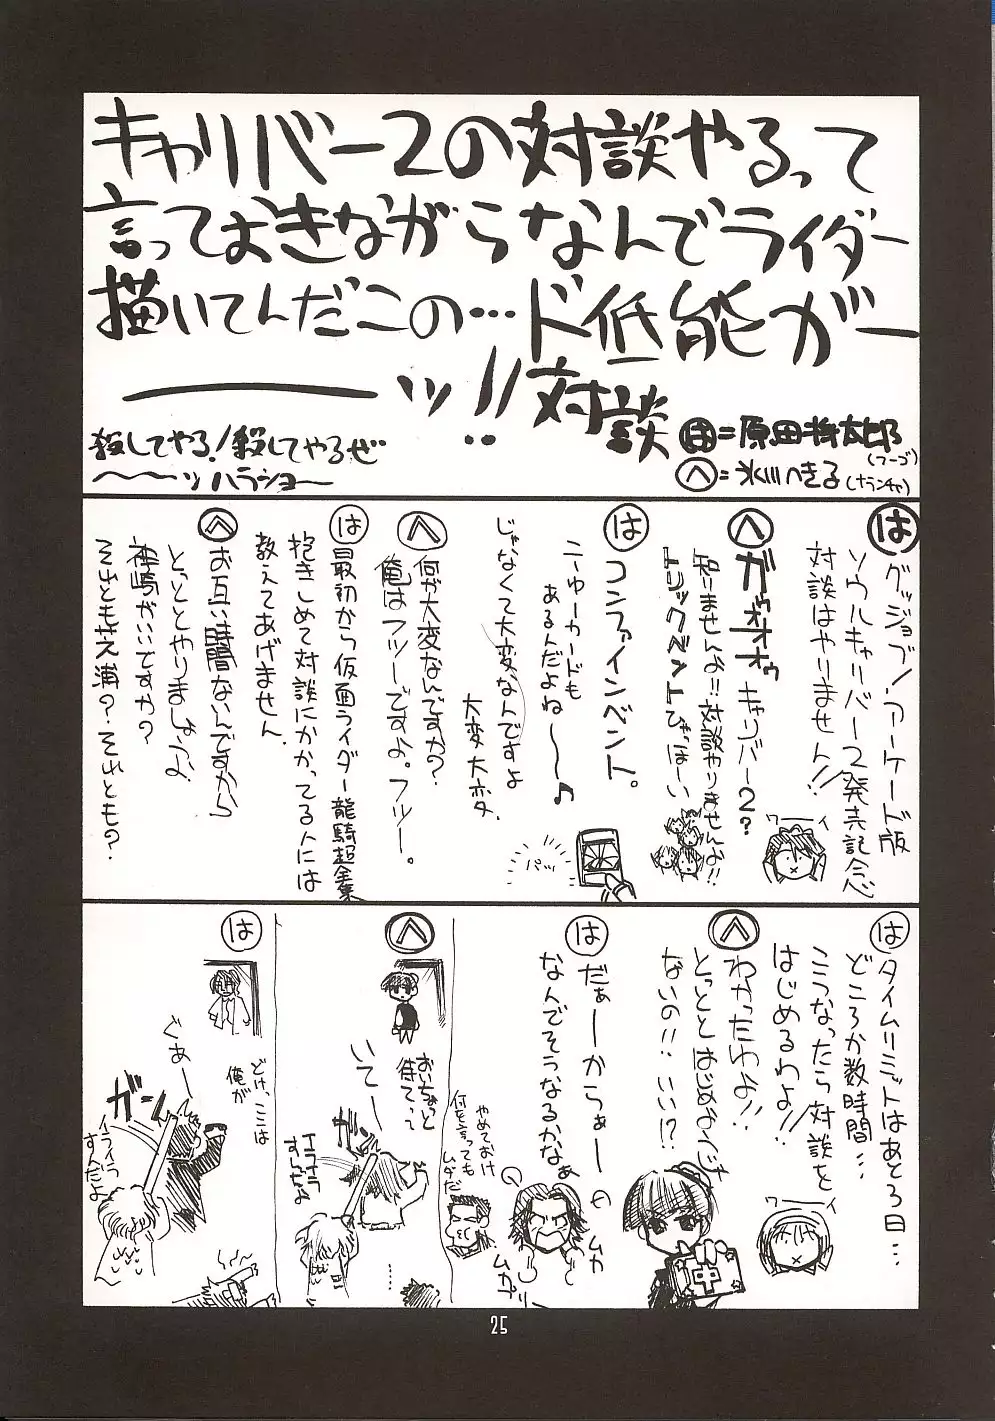 キャリバー2の対談やるって
言っておきながらなんでライダー
描いてんだこの…ド低能がー
――――ッ!!対談
殺してやる!殺してやるぜ
〜〜〜ッハラショー
は=原田将太郎
(フーゴ)
へ=氷川へきる(ナランチャ)
は
グッジョブ!アーケード版
ソウルキャリバー2発売記念
対談はやりません!!
ワーイ
へ
ガゥォォォゥ キャリバー2?
知りませんよ!!対談やりませんよ!!
トリックベントひゃっほーい
は
コンファインベント。
ニューカードも
あるんだよね〜〜♪
パッ
じゃなくて大変なんですよ
大変大変
へ
何が大変なんですか?
俺はフツーですよ。フツー。
は
最初から仮面ライダー龍騎超全集
抱きしめて対談にかかってる人には
教えてあげません。
へ
お互い時間ないんですから
とっととやりましょうよ
神崎がいいですか?
それとも芝浦?それとも?
は
タイムリミットはあと3日…
どころか数時間…
こうなったら対談を
はじめるわよ!!
ワーイ
へ
わかったわよ!!
とっととはじめようじゃ
ないの!!いい!?
中
は
だぁーーからぁーー
なんでそうなるかなぁ
ムカ
ムカ
やめておけ
何を言っても
ムダだ
へ
おいちょっと
待てって
いてー
イライラ
すんだよ
は
どけ、ここは
俺が
ぐぁーー
ガッ
イライラ
すんだよ
25